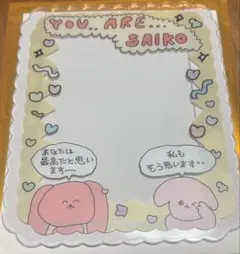 YOU.. ARE...
SAIKO
あなたは
最高だと思い
ます〜
私も
そう思います..